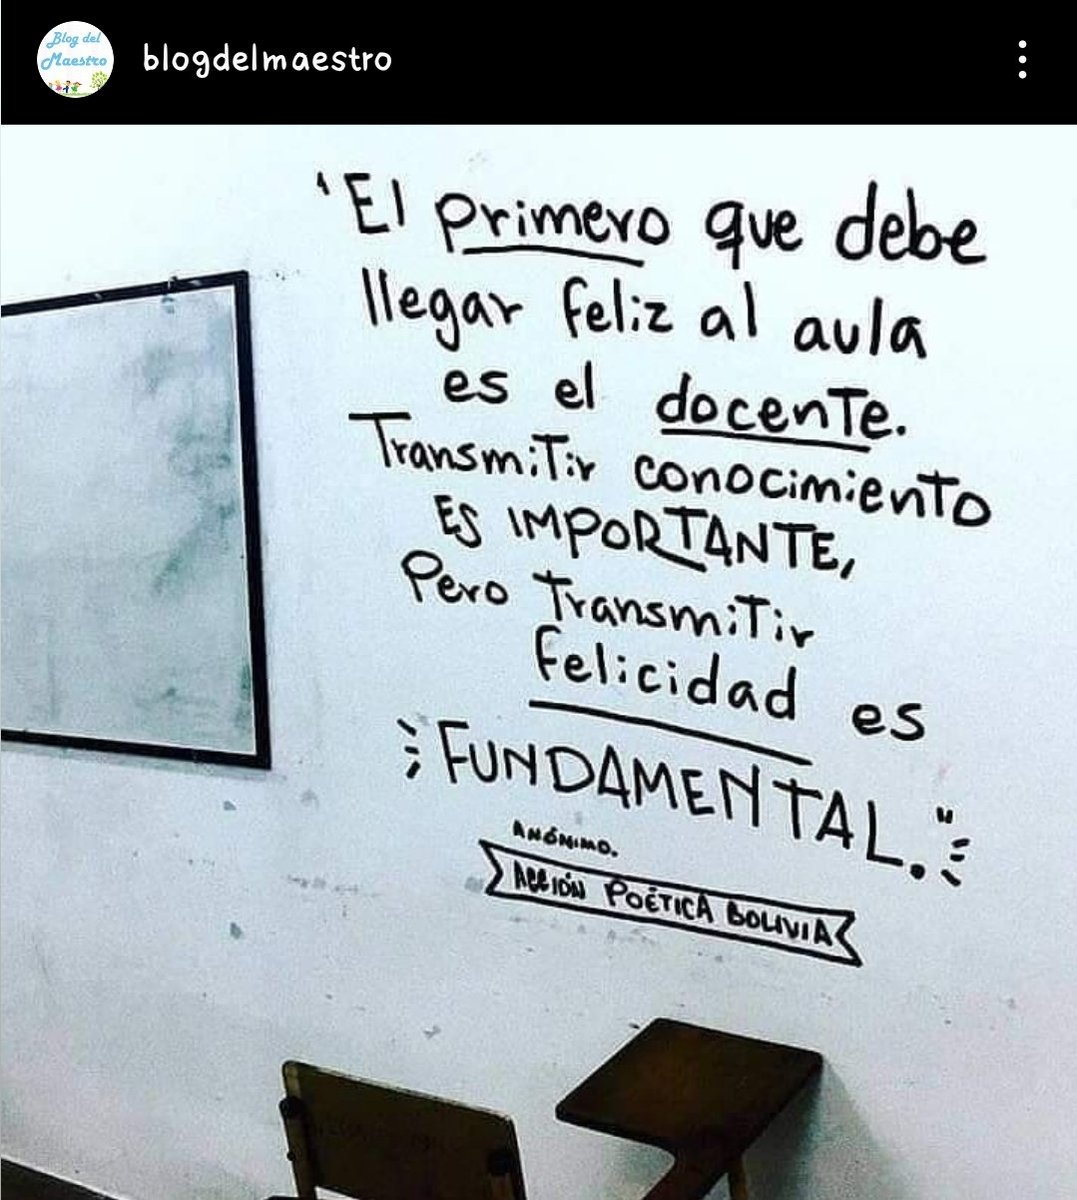 Blog del
Maestro
blogdelmaestro
'El primero que debe
llegar feliz al aula
es el docente.
Transmitir conocimiento
ES IMPORTANTE,
Pero Transmitir
felicidad es
FUNDAMENTAL."
ANÓNIMO.
ACCIÓN POÉTICA BOLIVIA